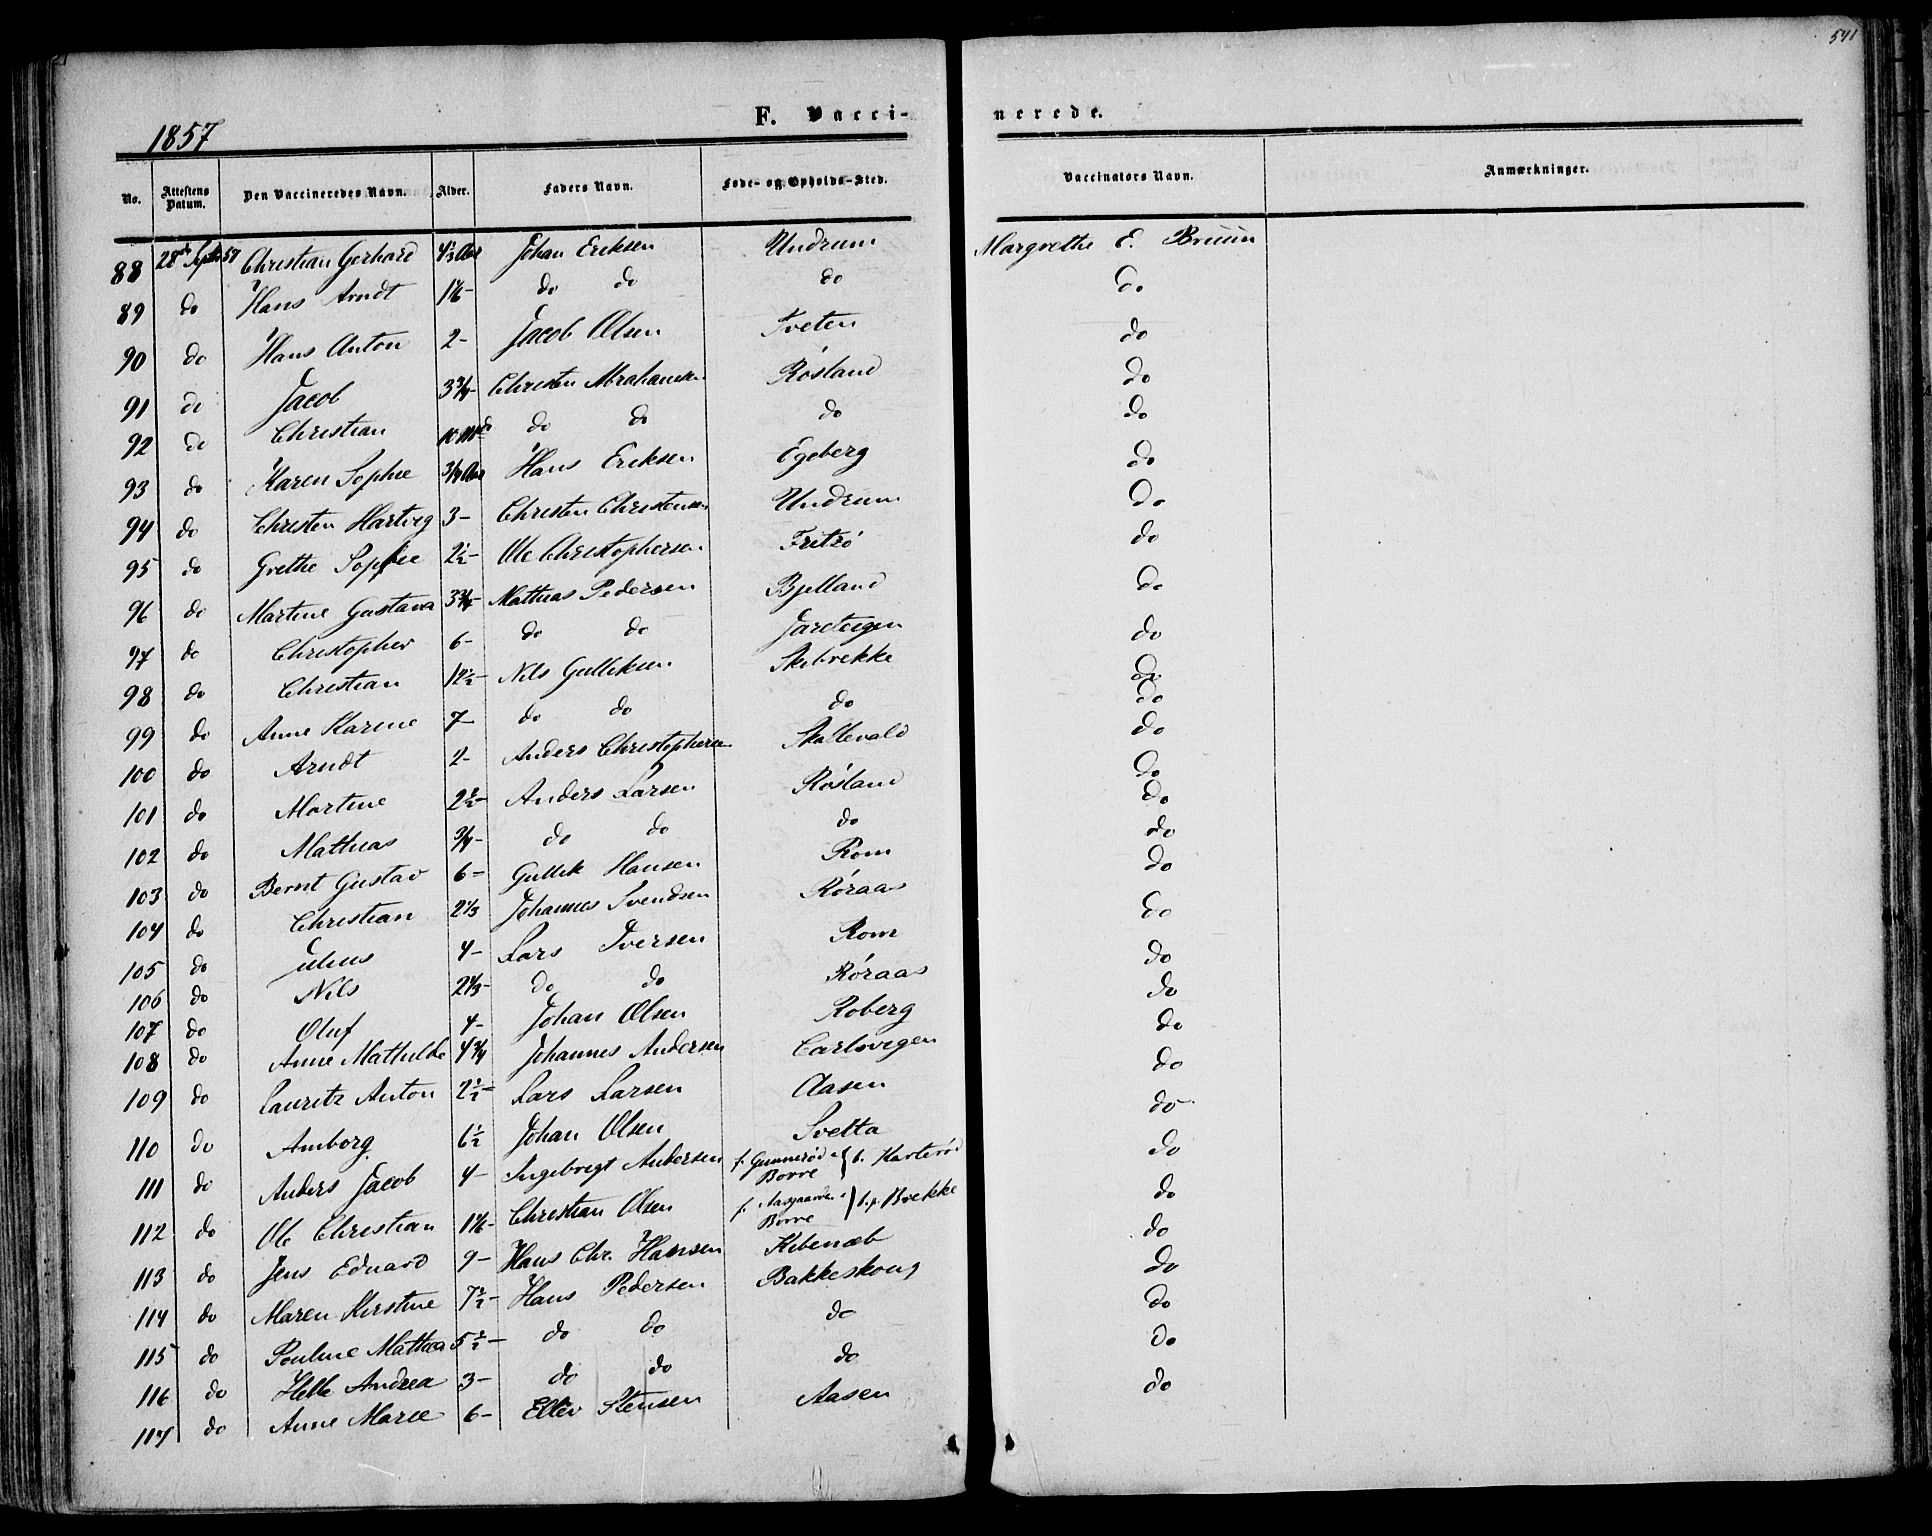 541
1857 F. Vacci- nerede.
No. Attestens Datum. Den Vaccineredes Navn. Alder. Faders Navn. Føde- og Opholds-Sted. Vaccinators Navn. Anmærkninger.
88 28de Septbr 57 Christian Gerhard 4½ Aar Johan Eriksen Undrum Margrethe E. Bruun
89 do Hans Arndt 1½- do do do do
90 do Hans Anton 2- Jacob Olsen Tveten do
91 do Jacob 3¾- Christen Abrahamsen Røsland do
92 do Christian 10 Mdr do do do do
93 do Karen Sophie ¾ Aar Hans Eriksen Egeberg do
94 do Christen Hartvig 3- Christen Christensen Undrum do
95 do Grethe Sophie 2½- Ole Christophersen Fritzø do
96 do Martine Gustava 3¾- Mathias Pedersen Bjelland do
97 do Christopher 6- do do Jareteigen do
98 do Christian 12½- Nils Gulliksen Skibrekke do
99 do Anne Karine 7- do do do do
100 do Arndt 2- Anders Christophersen Skallevald do
101 do Martine 2½- Anders Larsen Røsland do
102 do Mathias ¾- do do do do
103 do Bernt Gustav 6- Gullik Hansen Rom do
104 do Christian 2⅓ Johannes Svendsen Røraas do
105 do Julius 4- Lars Iversen Rom do
106 do Nils 2⅓- do do Røraas do
107 do Oluf 4- Johan Olsen Roberg do
108 do Anne Mathilde 4¾ Johannes Andersen Carlsvegen do
109 do Lauritz Anton 2½- Lars Larsen Aasen do
110 do Amborg 6½ Johan Olsen Svetta do
111 do Anders Jacob 4- Ingebregt Andersen f. Gunnerød Borre } b. Karterød do
112 do Ole Christian 1½- Christian Olsen f. Aasgaarden Borre } b.p. Brekke do
113 do Jens Eduard 9- Hans Chr. Hansen Kibenæb do
114 do Maren Kirstine 7½- Hans Pedersen Bakkeskoug do
115 do Pouline Mathea 5½- do do do do
116 do Helle Andrea 3- do do do do
117 do Anne Marie 6- Ellev Stensen Aasen do